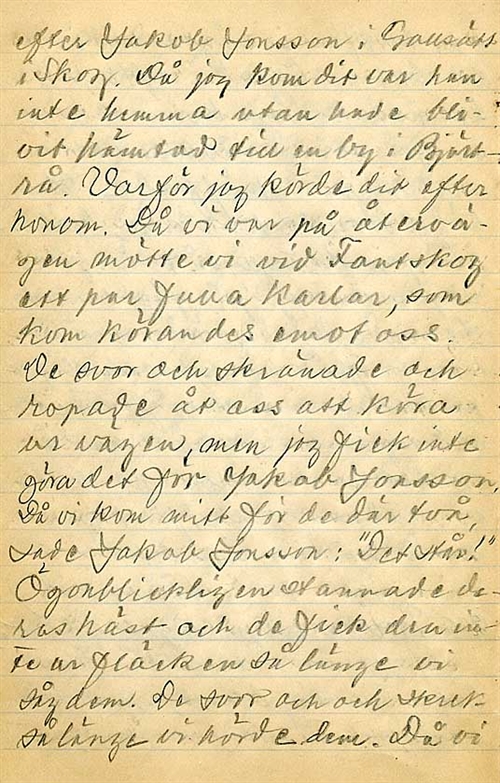 efter Jakob Jonsson i Gallsätt
i Skog. Då jag kom dit var han
inte hemma utan hade bli-
vit hämtad till en by i Bjärt-
rå. Varför jag körde dit efter
honom. Då vi var på återvä-
gen mötte vi vid Fantskog
ett par fulla karlar, som
kom körandes emot oss.
De svor och skränade och
ropade åt oss att köra
ur vägen, men jag fick inte
göra det för Jakob Jonsson,
Då vi kom mitt för de där två,
sade Jakob Jonsson: "Det står!"
Ögonblickligen stannade de-
ras häst och de fick den in-
te ur fläcken så länge vi
såg dem. De svor och och skrek
så länge vi hörde dem. Då vi